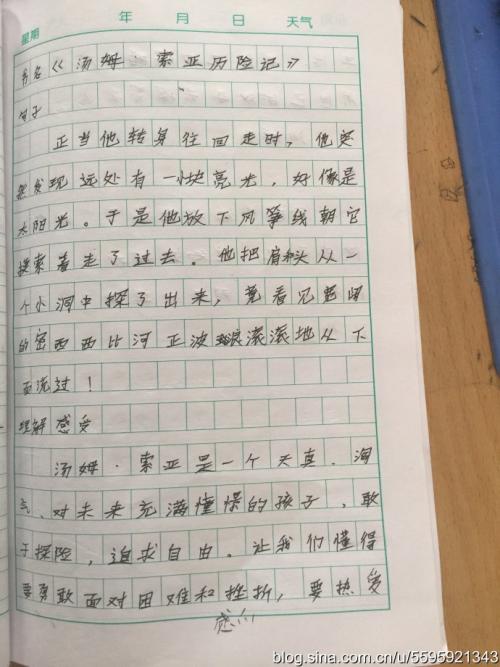 年 月 日 天气
星期
书名《汤姆·索亚历险记》
句子
正当他转身往回走时,他突
然发现远处有一块亮光,好像是
太阳光。于是他放下风筝线朝它
摸索着走了过去。他把肩和头从一
个小洞中探了出来,竟看见宽阔
的密西西比河正波浪滚滚地从下
面流过!
理解感受
汤姆·索亚是一个天真、淘
气、对未来充满憧憬的孩子,敢
于探险,追求自由。让我们懂得
要勇敢面对困难和挫折,要热爱
blog.sina.com.cn/u/5595921343